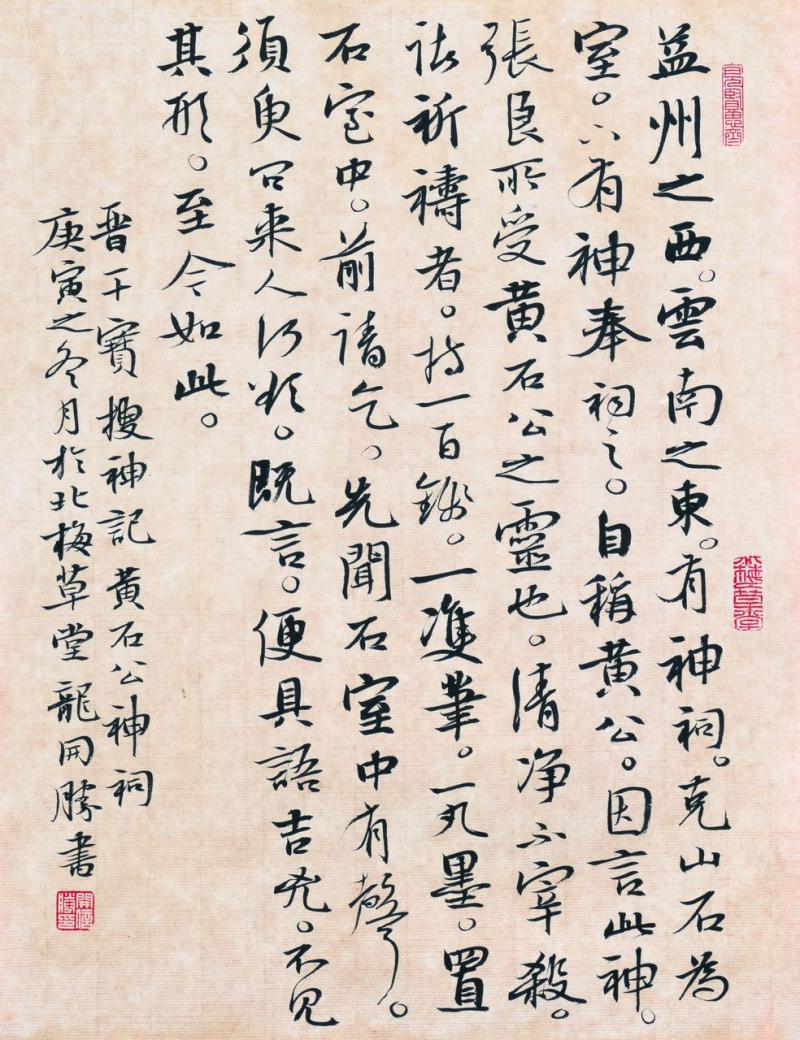 益州之西。雲南之東。有神祠。克山石為
室。下有神奉祠之。自稱黃公。因言此神。
張良所受黃石公之靈也。清净不宰殺。
諸祈禱者。持一百錢。一雙筆。一丸墨。置
石室中。前請乞。先聞石室中有聲。
須臾問來人何欲。既言。便具語吉凶。不見
其形。至今如此。
晋干寶搜神記黃石公神祠
庚寅之冬月於北梅草堂龍開勝書